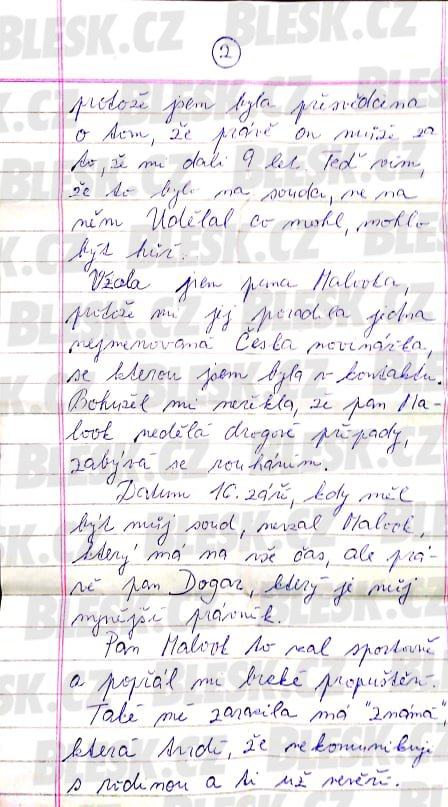 2
protože jsem byla přesvědčena
o tom, že právě on může za
to, že mi dali 9 let. Teď vím,
že to bylo na soudci, ne na
něm. Udělal co mohl, mohlo
být hůř.
Vzala jsem pana Malooka,
protože mi jej poradila jedna
nejmenovaná Česká novinářka,
se kterou jsem byla v kontaktu.
Bohužel mi neřekla, že pan Ma-
look nedělá drogové případy,
zabývá se rouháním.
Datum 10. září, kdy měl
být můj soud, nevzal Malook,
který má na vše čas, ale prá-
vě pan Dogar, který je můj
nynější právník.
Pan Malook to vzal sportovně
a popřál mi brzké propuštění.
Také mě zarazila má "známá",
která tvrdí, že nekomunikuji
s rodinou a ti už nevěří.
BLESK.CZ